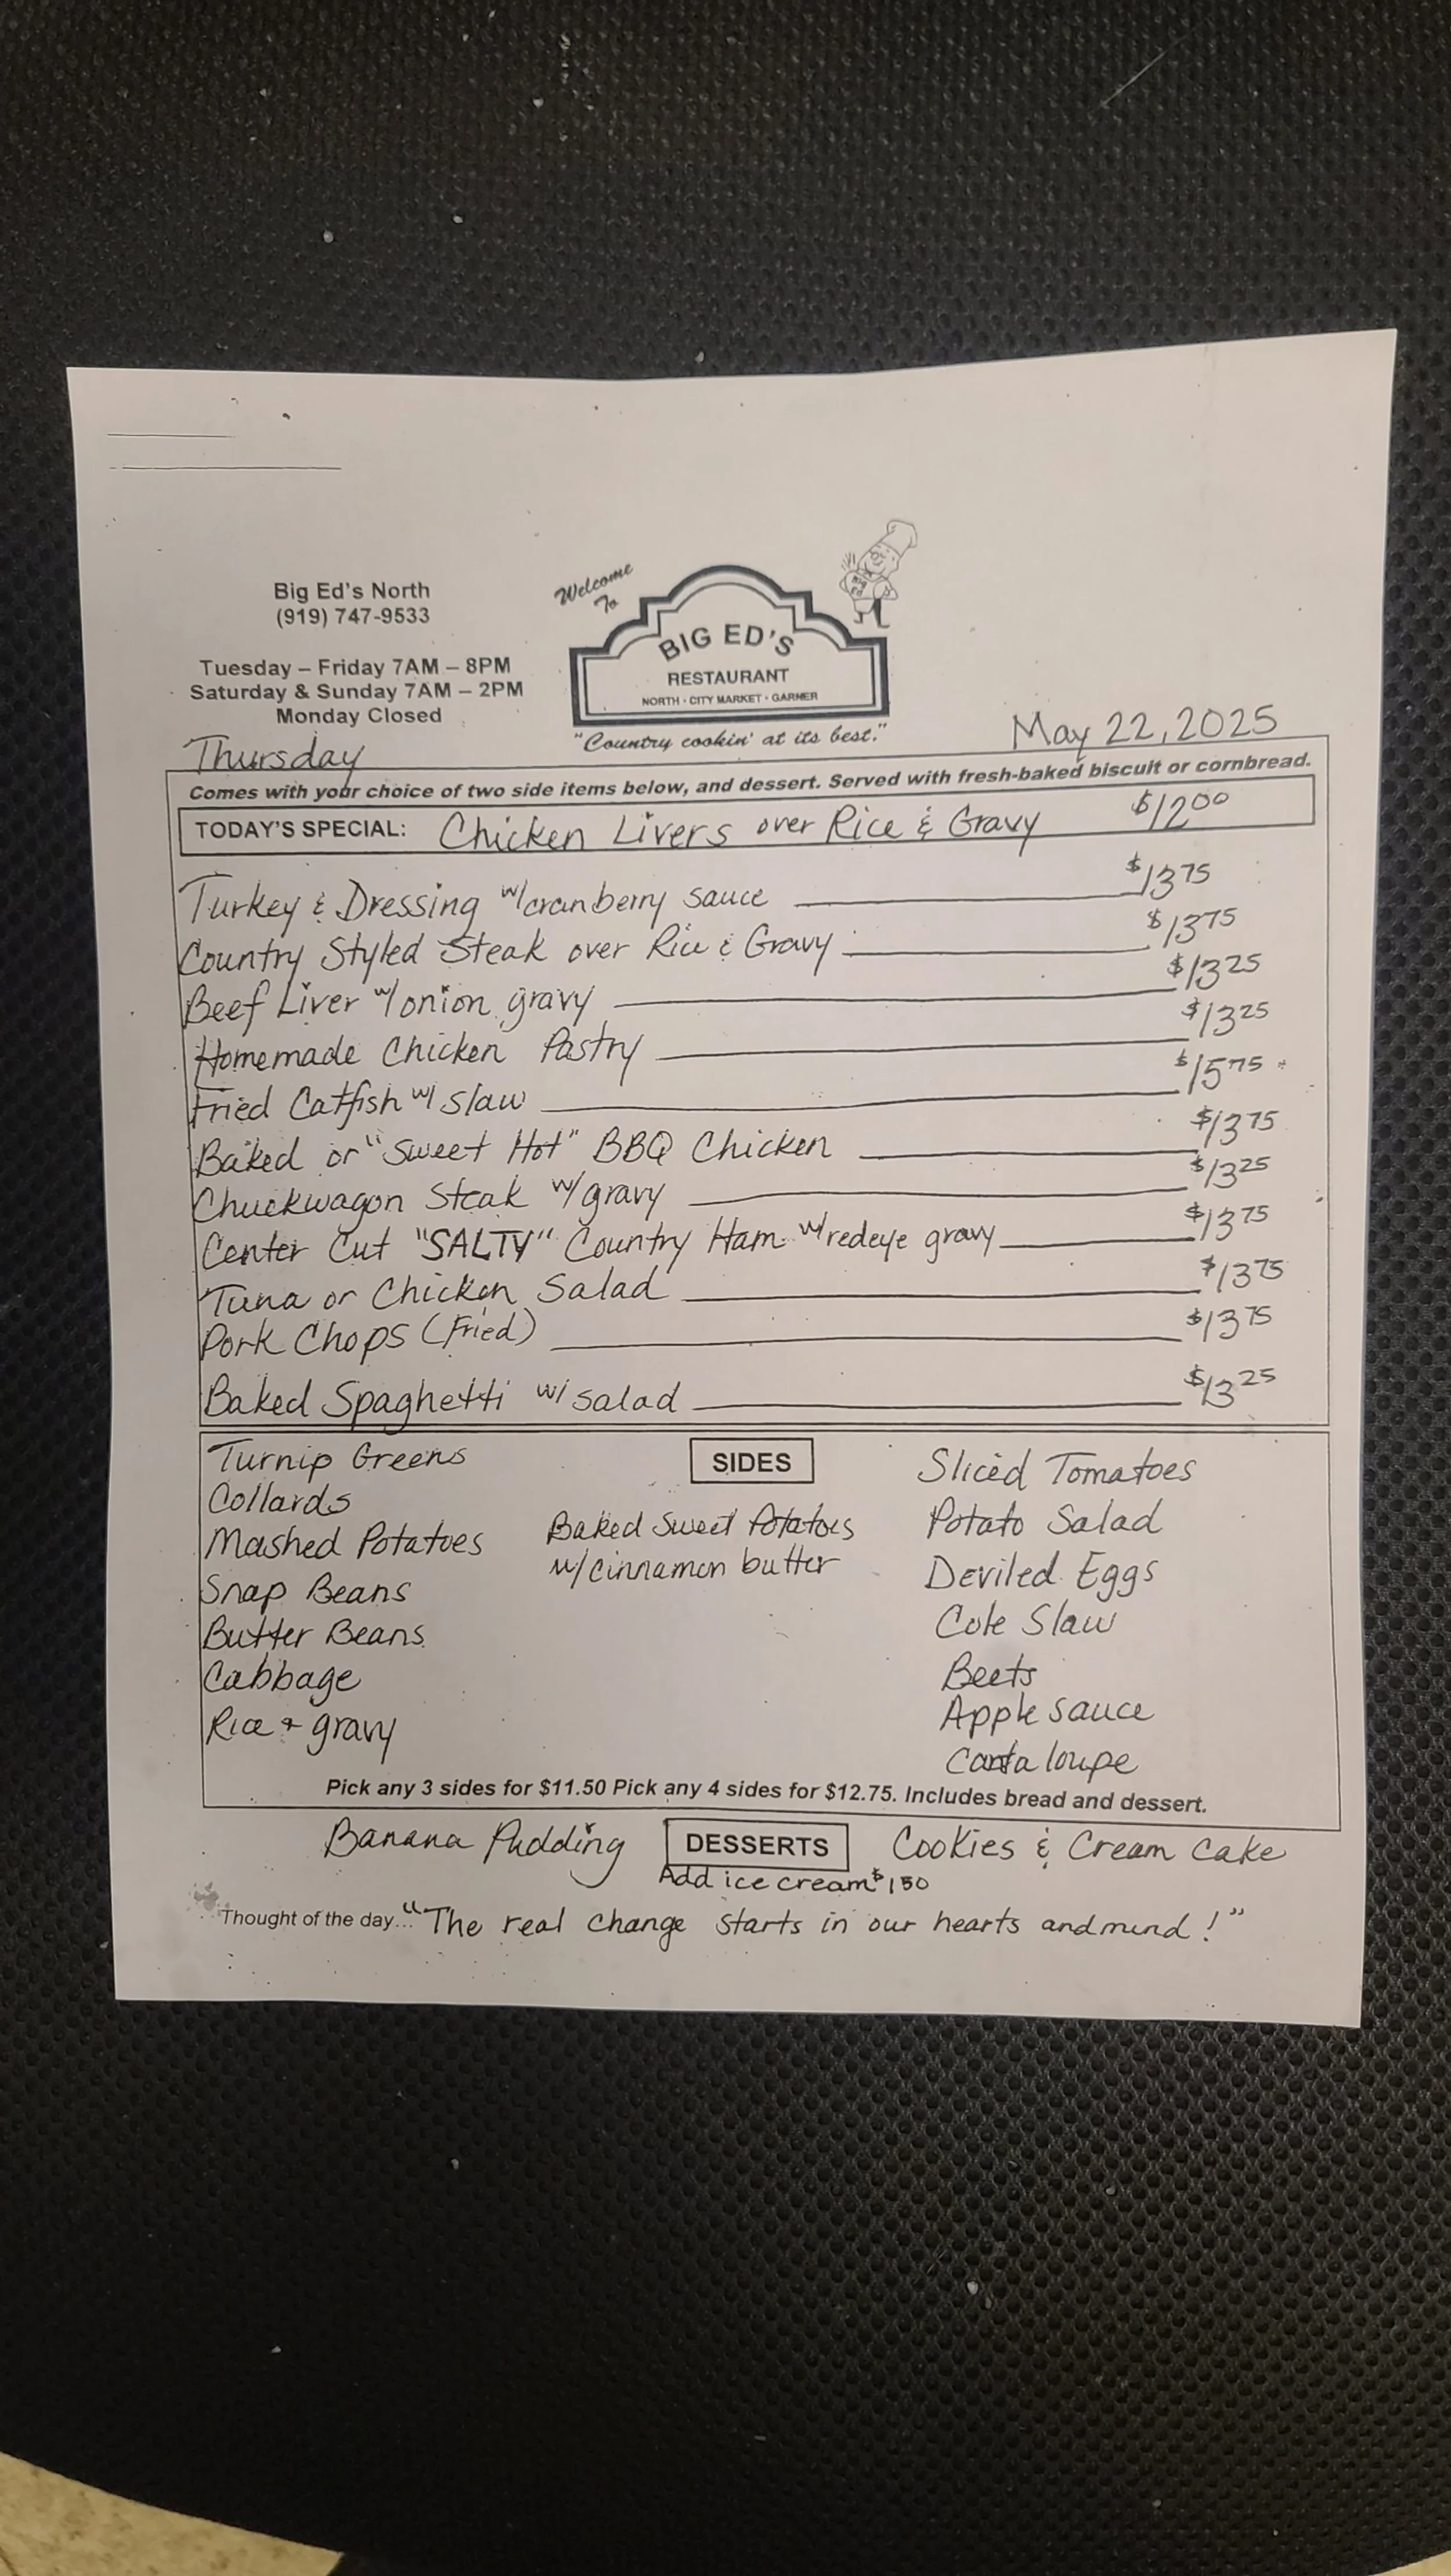 Big Ed's North
(919) 747-9533
Tuesday – Friday 7AM – 8PM
Saturday & Sunday 7AM – 2PM
Monday Closed
Welcome
To
BIG ED'S
RESTAURANT
NORTH · CITY MARKET · GARNER
"Country cookin' at its best."
Thursday
May 22, 2025
Comes with your choice of two side items below, and dessert. Served with fresh-baked biscuit or cornbread.
TODAY'S SPECIAL: Chicken Livers over Rice & Gravy $12.00
Turkey & Dressing w/cranberry sauce $13.75
Country Styled Steak over Rice & Gravy $13.75
Beef Liver w/onion gravy $13.25
Homemade Chicken Pastry $13.25
Fried Catfish w/ slaw $15.75
Baked or "Sweet Hot" BBQ Chicken $13.75
Chuckwagon Steak w/gravy $13.25
Center Cut "SALTY" Country Ham w/redeye gravy $13.75
Tuna or Chicken Salad $13.75
Pork Chops (Fried) $13.75
Baked Spaghetti w/ salad $13.25
SIDES
Turnip Greens
Collards
Mashed Potatoes
Snap Beans
Butter Beans
Cabbage
Rice + gravy
Baked Sweet Potatoes
w/cinnamon butter
Sliced Tomatoes
Potato Salad
Deviled Eggs
Cole Slaw
Beets
Apple sauce
Cantaloupe
Pick any 3 sides for $11.50 Pick any 4 sides for $12.75. Includes bread and dessert.
Banana Pudding DESSERTS Cookies & Cream Cake
Add ice cream $1.50
Thought of the day... "The real change starts in our hearts and mind!"